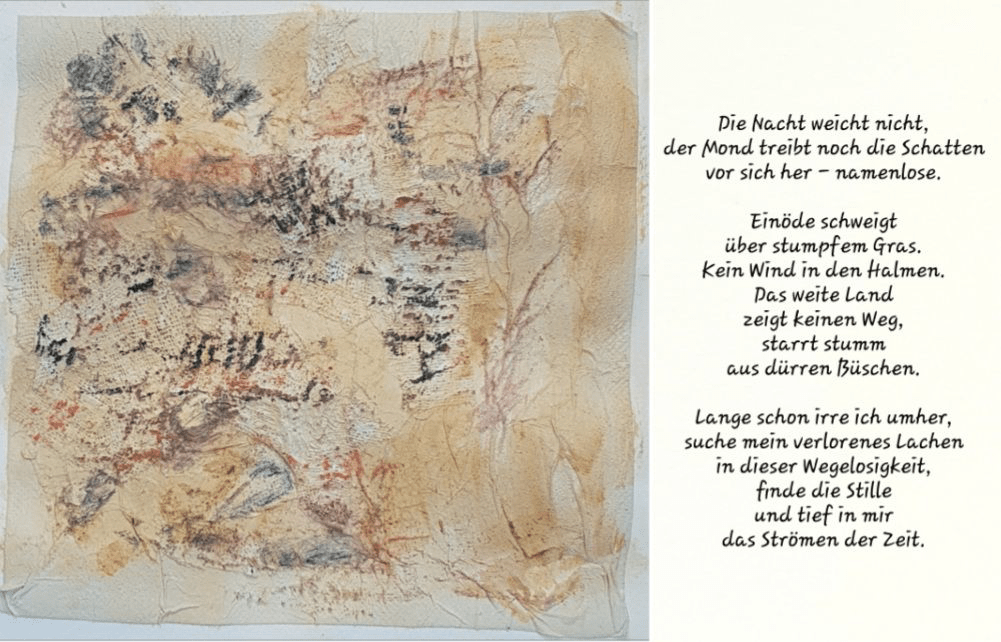 Die Nacht weicht nicht,
der Mond treibt noch die Schatten
vor sich her – namenlose.
Einöde schweigt
über stumpfem Gras.
Kein Wind in den Halmen.
Das weite Land
zeigt keinen Weg,
starrt stumm
aus dürren Büschen.
Lange schon irre ich umher,
suche mein verlorenes Lachen
in dieser Wegelosigkeit,
finde die Stille
und tief in mir
das Strömen der Zeit.